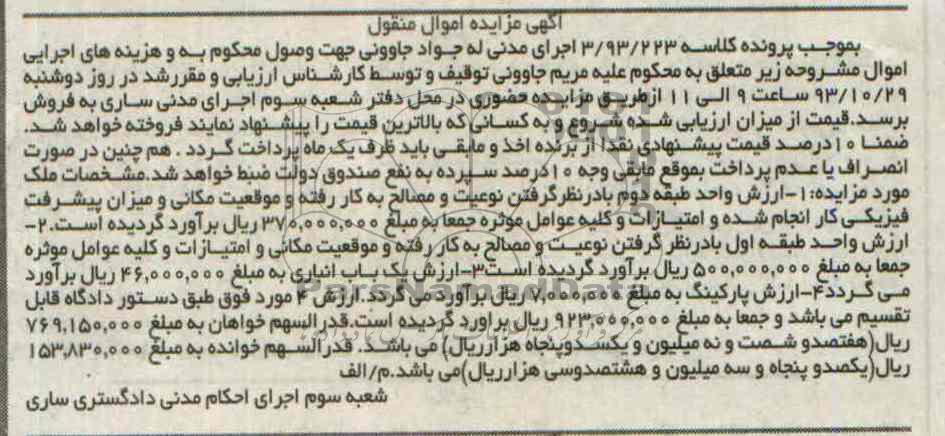 آگهی مزایده اموال منقول
بموجب پرونده کلاسه ۳/۹۳/۲۲۳ اجرای مدنی له جواد جاوونی جهت وصول محکوم به و هزینه های اجرایی
اموال مشروحه زیر متعلق به محکوم علیه مریم جاوونی توقیف و توسط کارشناس ارزیابی و مقررشد در روز دوشنبه
۹۳/۱۰/۲۹ ساعت ۹ الی ۱۱ ازطریق مزایده حضوری در محل دفتر شعبه سوم اجرای مدنی ساری به فروش
برسد.قیمت از میزان ارزیابی شده شروع و به کسانی که بالاترین قیمت را پیشنهاد نمایند فروخته خواهد شد.
ضمنا ۱۰درصد قیمت پیشنهادی نقدا از برنده اخذ و مابقی باید ظرف یک ماه پرداخت گردد . هم چنین در صورت
انصراف یا عدم پرداخت بموقع مابقی وجه ۱۰درصد سپرده به نفع صندوق دولت ضبط خواهد شد.مشخصات ملک
مورد مزایده:۱-ارزش واحد طبقه دوم بادرنظرگرفتن نوعیت و مصالح به کار رفته و موقعیت مکانی و میزان پیشرفت
فیزیکی کار انجام شده و امتیازات و کلیه عوامل موثره جمعا به مبلغ ۳۷۰,۰۰۰,۰۰۰ ریال برآورد گردیده است.۲-
ارزش واحد طبقه اول بادرنظر گرفتن نوعیت و مصالح به کار رفته و موقعیت مکانی و امتیازات و کلیه عوامل موثره
جمعا به مبلغ ۵۰۰,۰۰۰,۰۰۰ ریال برآورد گردیده است۳-ارزش یک باب انباری به مبلغ ۴۶,۰۰۰,۰۰۰ ریال برآورد
می گردد۴-ارزش پارکینگ به مبلغ ۷,۰۰۰,۰۰۰ ریال برآورد می گردد.ارزش ۴ مورد فوق طبق دستور دادگاه قابل
تقسیم می باشد و جمعا به مبلغ ۹۲۳,۰۰۰,۰۰۰ ریال براورد گردیده است.قدرالسهم خواهان به مبلغ ۷۶۹,۱۵۰,۰۰۰
ریال(هفتصدو شصت و نه میلیون و یکصدوپنجاه هزارریال) می باشد. قدرالسهم خوانده به مبلغ ۱۵۳,۸۳۰,۰۰۰
ریال(یکصدو پنجاه و سه میلیون و هشتصدوسی هزارریال)می باشد.م/الف
شعبه سوم اجرای احکام مدنی دادگستری ساری
ParsNamadData